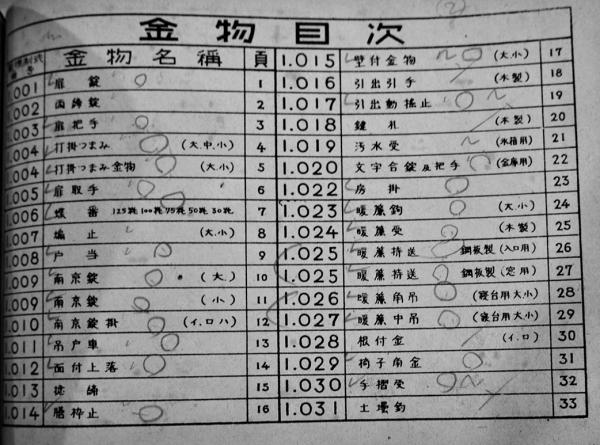 金物目次
番号 金物名稱 頁
1.001 扉錠 1
1.002 函錠 2
1.003 扉把手 3
1.004 打掛つまみ (大.中.小) 4
1.004 打掛つまみ金物 (大.小) 5
1.005 扉取手 6
1.006 蝶番 125粍 100粍 75粍 50粍 30粍 7
1.007 煽止 (大.小) 8
1.008 戸当 9
1.009 南京錠 (大.) 10
1.009 南京錠 (小) 11
1.010 南京錠掛 (イ.ロハ) 12
1.011 吊戸車 13
1.012 面付上落 14
1.013 締 15
1.014 止 16
1.015 壁付金物 (大小) 17
1.016 引出引手 (木製) 18
1.017 引出動揺止 19
1.018 鍵札 (木製) 20
1.019 汚水受 (水箱用) 21
1.020 文字合錠及把手 (金庫用) 22
1.022 房掛 23
1.023 暖簾鉤 (大小) 24
1.024 暖簾受 (木製) 25
1.025 暖簾持送 鋼板製(入口用) 26
1.025 暖簾持送 鋼板製(定用) 27
1.026 暖簾角吊 (寝台用大小) 28
1.027 暖簾中吊 (寝台用大小) 29
1.028 根付金 (イ.ロ) 30
1.029 椅子角金 31
1.030 手摺受 32
1.031 土壜鈎 33